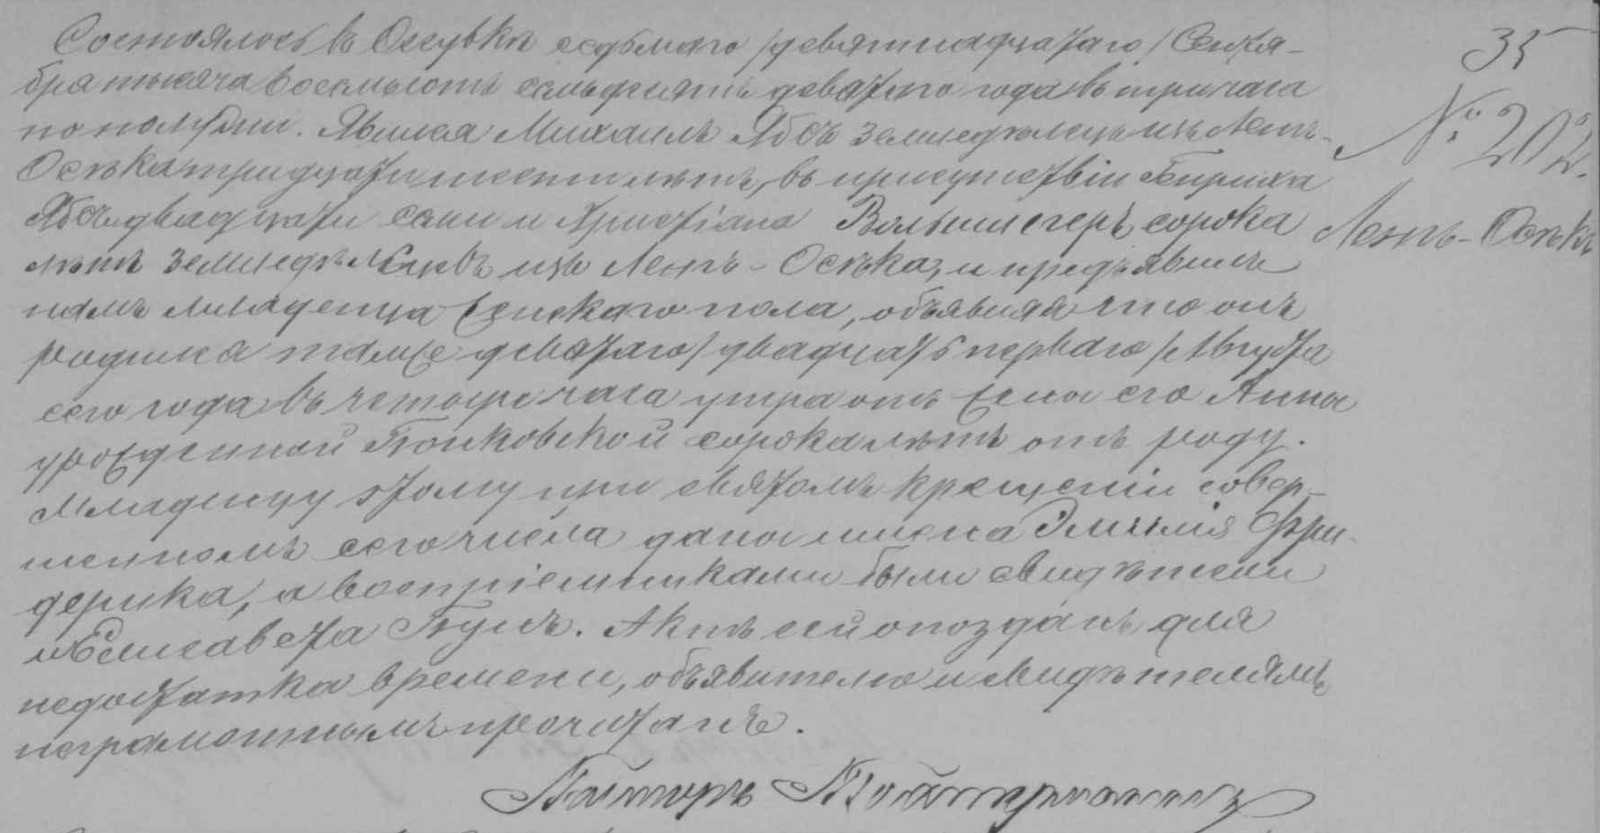 Состоялось въ Осувкѣ седьмаго /девятнадцатаго/ Сентя-
бря тысяча восемьсотъ семьдесятъ девятаго года въ три часа
по полудни. Явился Михаилъ Ябсъ земледѣлецъ изъ Ленъ-
Осѣка тридцати шести лѣтъ, въ присутствіи
Ябсъ двадцати семи и Христіана сорока
лѣтъ земледѣльцевъ изъ Ленъ-Осѣка, и предъявилъ
намъ младенца женскаго пола, объявляя что онъ
родился тамже девятаго /двадцать перваго/ Августа
сего года въ четыре часа утра отъ жены его Анны
урожденной сорока лѣтъ отъ роду.
Младенцу этому при святомъ крещеніи совер-
шенномъ сего числа даны имена Эмилія Фри-
дерика, а воспріемниками были свидѣтели
и Елисавета. Актъ сей опозданъ для
недостатка времени, объявителю и свидѣтелямъ
неграмотнымъ прочитанъ.
Пасторъ
35
№ 202.
Ленъ-Осѣкъ